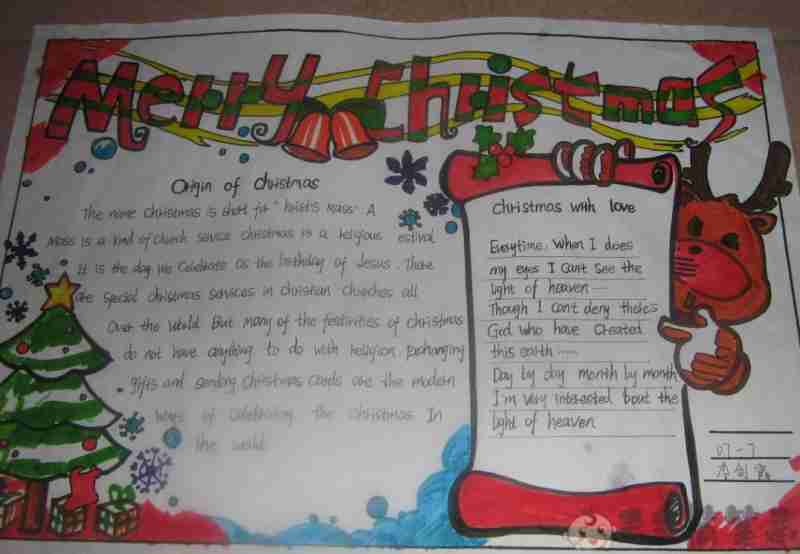 Merry Christmas
Origin of christmas
The name christmas is short for "hrist's Mass" A
Mass is a kind of church service christmas is a religious estival
It is the day we celebrate as the birthday of Jesus. There
are special christmas services in christian churches all
Over the world. But many of the festivities of christmas
do not have anything to do with religion Exchanging
gifts and sending christmas cards are the modern
ways of celebrating the christmas In
the world
christmas with love
Everytime, When I does
my eyes I Can't see the
light of heaven ······
Though I can't deny there's
God who have created
this earth ······
Day by day month by month
I'm very interested 'bout the
light of heaven
07-7